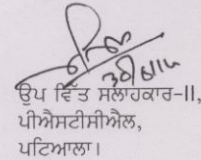 ਉਪ ਵਿੱਤ ਸਲਾਹਕਾਰ-II,
ਪੀਐਸਟੀਸੀਐਲ,
ਪਟਿਆਲਾ।